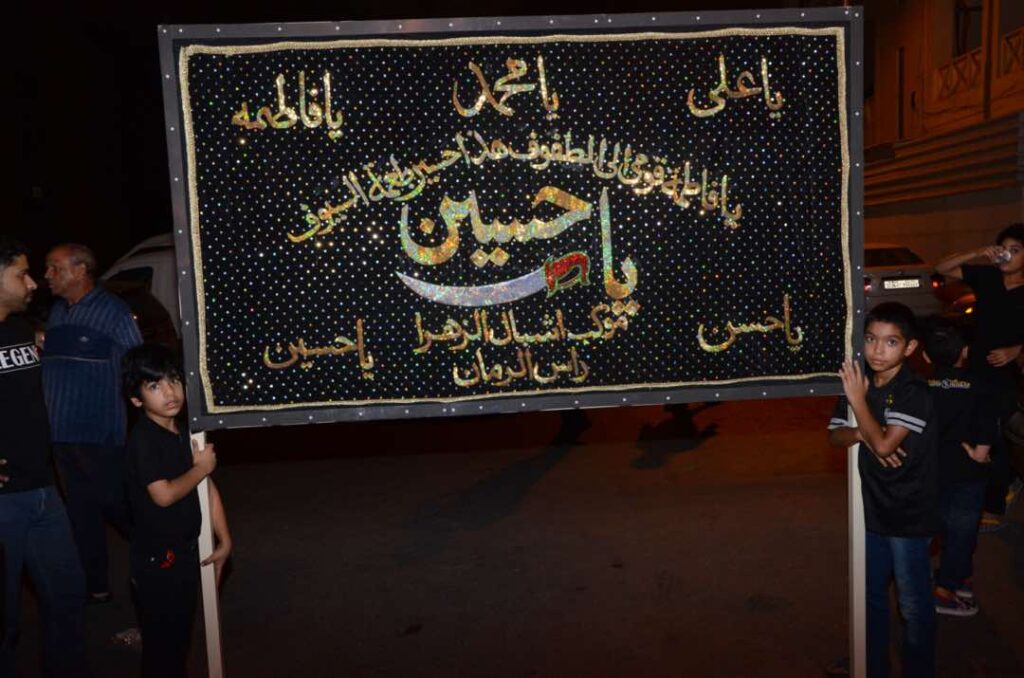 يا علي
يا محمد
يا فاطمه
يا فاطمة قومي الى الطفوف هذا حسين طعمة السيوف
يا حسين
يا حسن
موكب اشبال الزهرا
يا حسين
راس الرمان
LEGEN